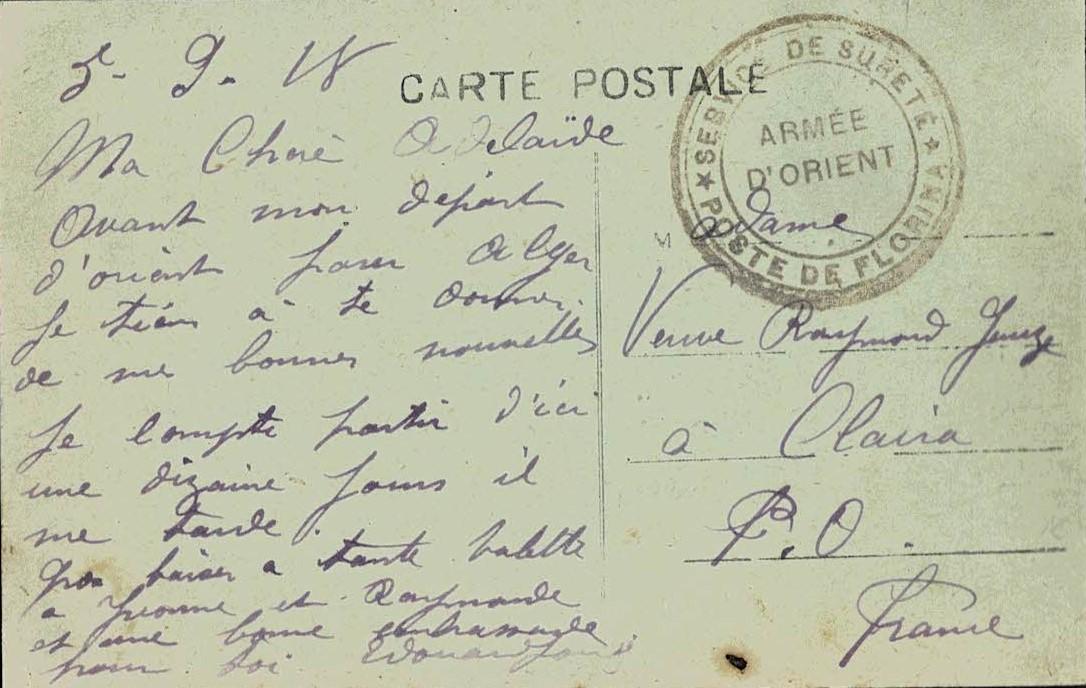 5- 9- 18
CARTE POSTALE
Ma Chère Adelaïde
Avant mon départ
d'orient pour Alger
Je tiens à te donner
de me bonnes nouvelles
Je compte partir d'ici
une dizaine Jours il
me tarde.
Gros baiser a tante
a Jeanne et Raymonde
et une bonne embrassade
pour toi Edouard
★ SERVICE DE SURETÉ ★
POSTE DE FLORINA
ARMÉE
D'ORIENT
Madame
Veuve Raymond
à Claira
P.O.
France